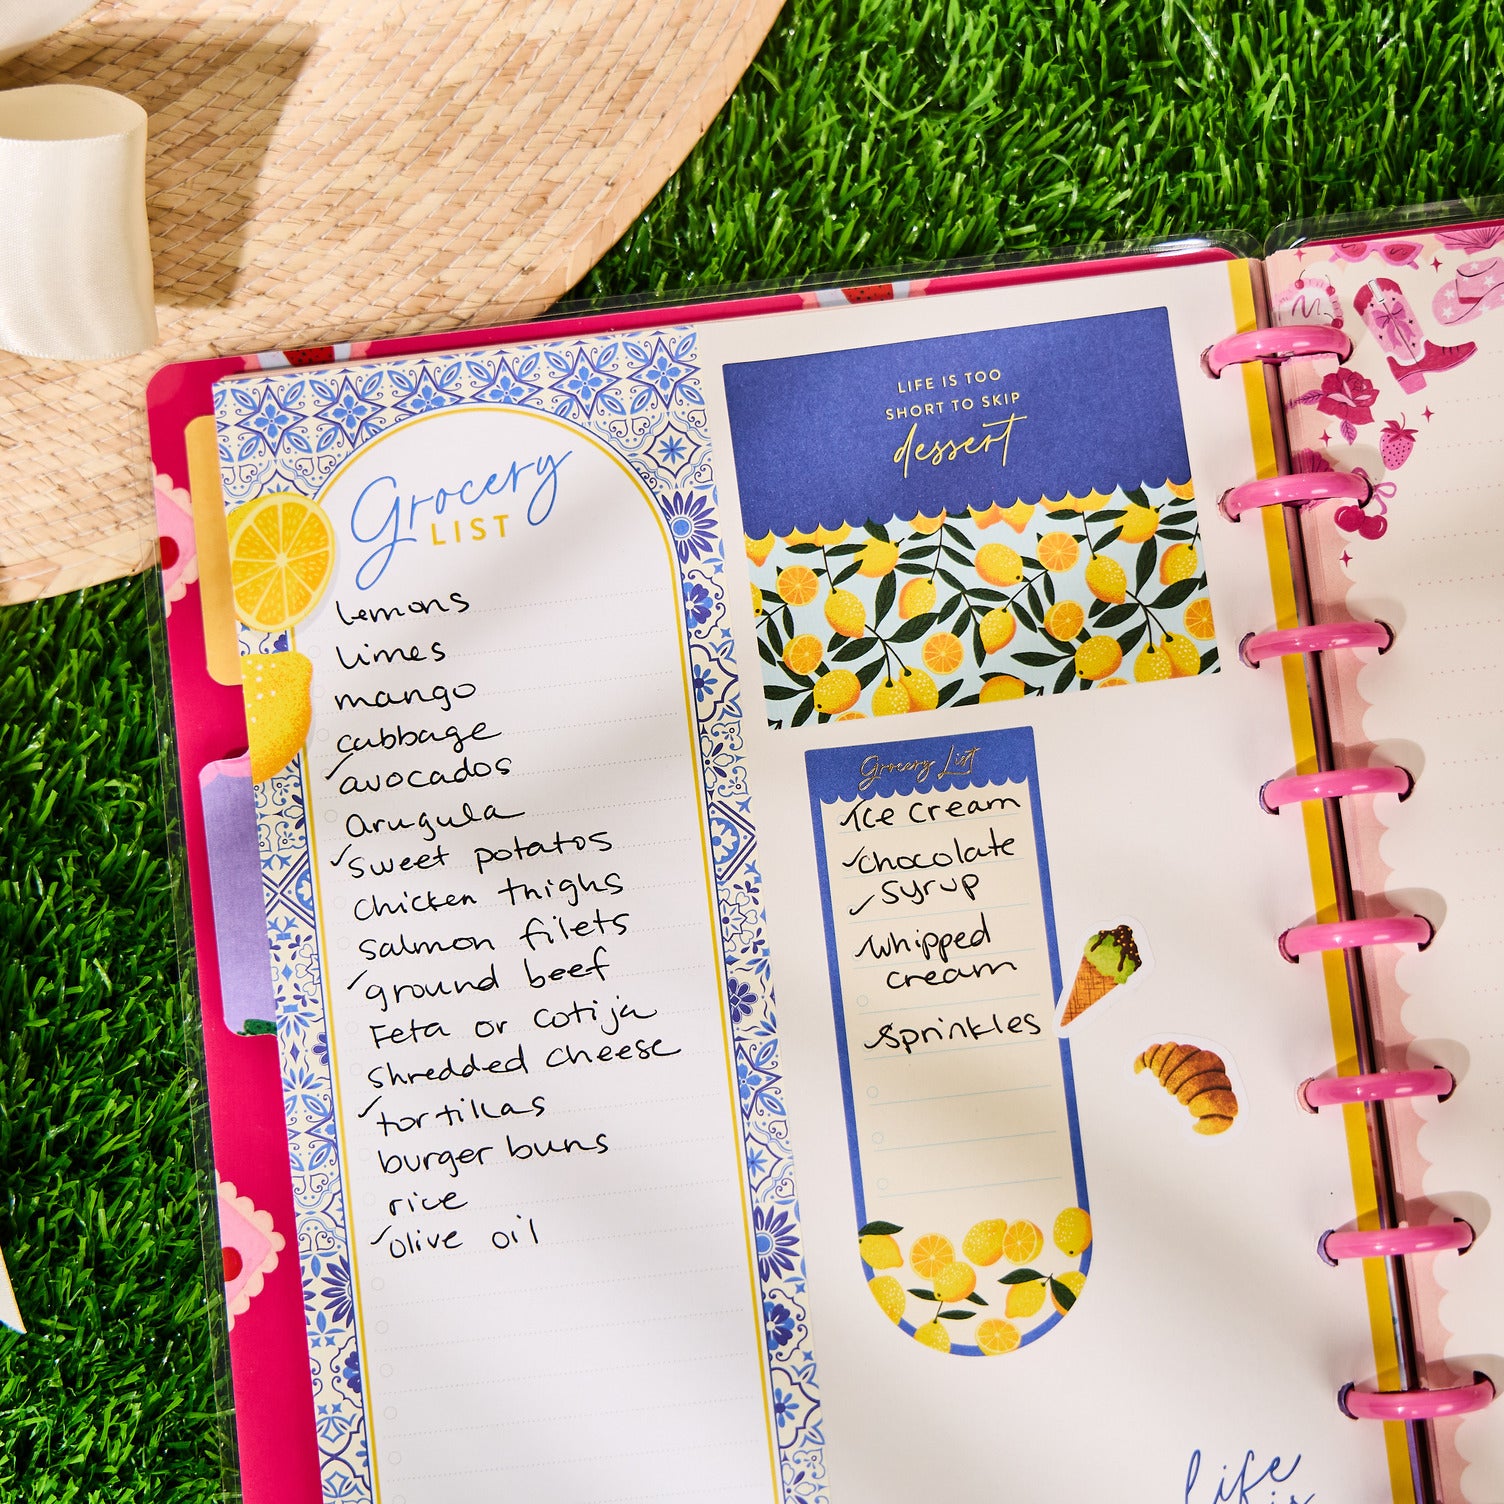 Grocery
LIST
lemons
limes
mango
cabbage
✓avocados
arugula
✓sweet potatos
chicken thighs
salmon filets
✓ground beef
Feta or cotija
shredded cheese
✓tortillas
burger buns
rice
✓olive oil
LIFE IS TOO
SHORT TO SKIP
dessert
Grocery List
✓Ice cream
✓chocolate
✓syrup
✓whipped
cream
✓sprinkles
life
is